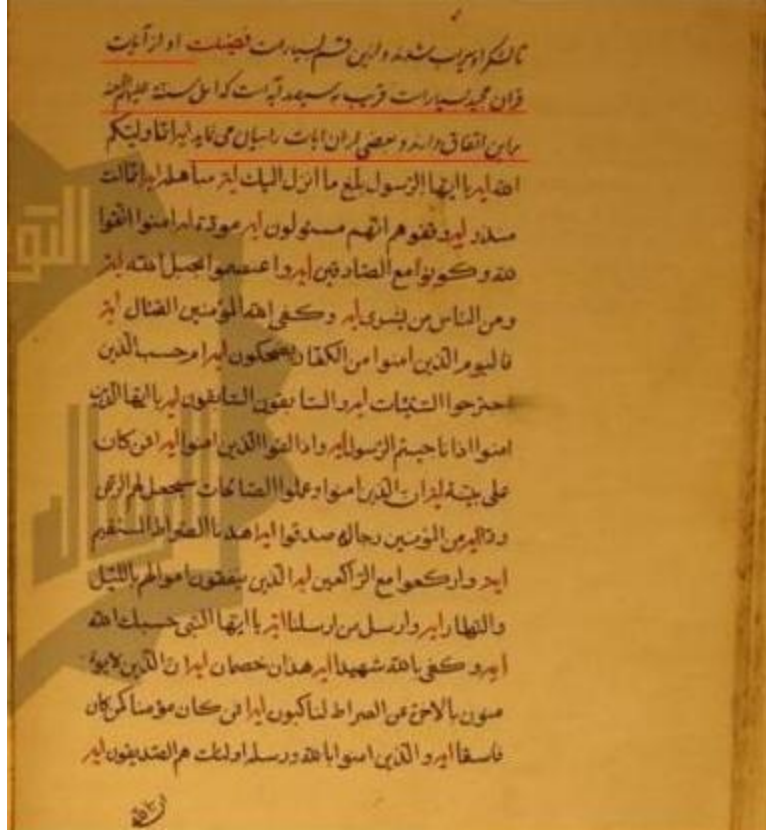 تا لشکر او سیراب شدند و ازین قسم بسیارست فضیلت او از آیات
قرآن مجید بسیارست قریب به سیصد آیه است که اهل سنة علیهم
براین اتفاق دارند و بعضی ازان ایات را بیان می نماید ایه انما ولیکم
الله ایه یا ایها الرسول بلغ ما انزل الیک ایه مباهله ایه
ایه وقفوهم انهم مسئولون ایه مودة ایه امنوا اتقوا
الله و کونوا مع الصادقین ایه واعتصموا بحبل الله ایه
ومن الناس من یشری ایه وکفی الله المؤمنین القتال ایه
فالیوم الذین امنوا من الکفار یضحکون ایه ام حسب الذین
اجترحوا السیئات ایه والسابقون السابقون ایه یا ایها الذین
امنوا اذا ناجیتم الرسول ایه واذا لقوا الذین امنوا ایه افمن کان
علی بینة ایه ان الذین امنوا وعملوا الصالحات سیجعل لهم الرحمن
ودا ایه من المؤمنین رجال صدقوا ایه اهدنا الصراط المستقیم
ایه وارکعوا مع الراکعین ایه الذین ینفقون اموالهم باللیل
والنهار ایه واسئل من ارسلنا ایه یا ایها النبی حسبک الله
ایه وکفی بالله شهیدا ایه هذان خصمان ایه ان الذین لایؤ
منون بالاخرة عن الصراط لناکبون ایه افمن کان مؤمنا کمن کان
فاسقا ایه والذین امنوا بالله ورسله اولئک هم الصدیقون ایه